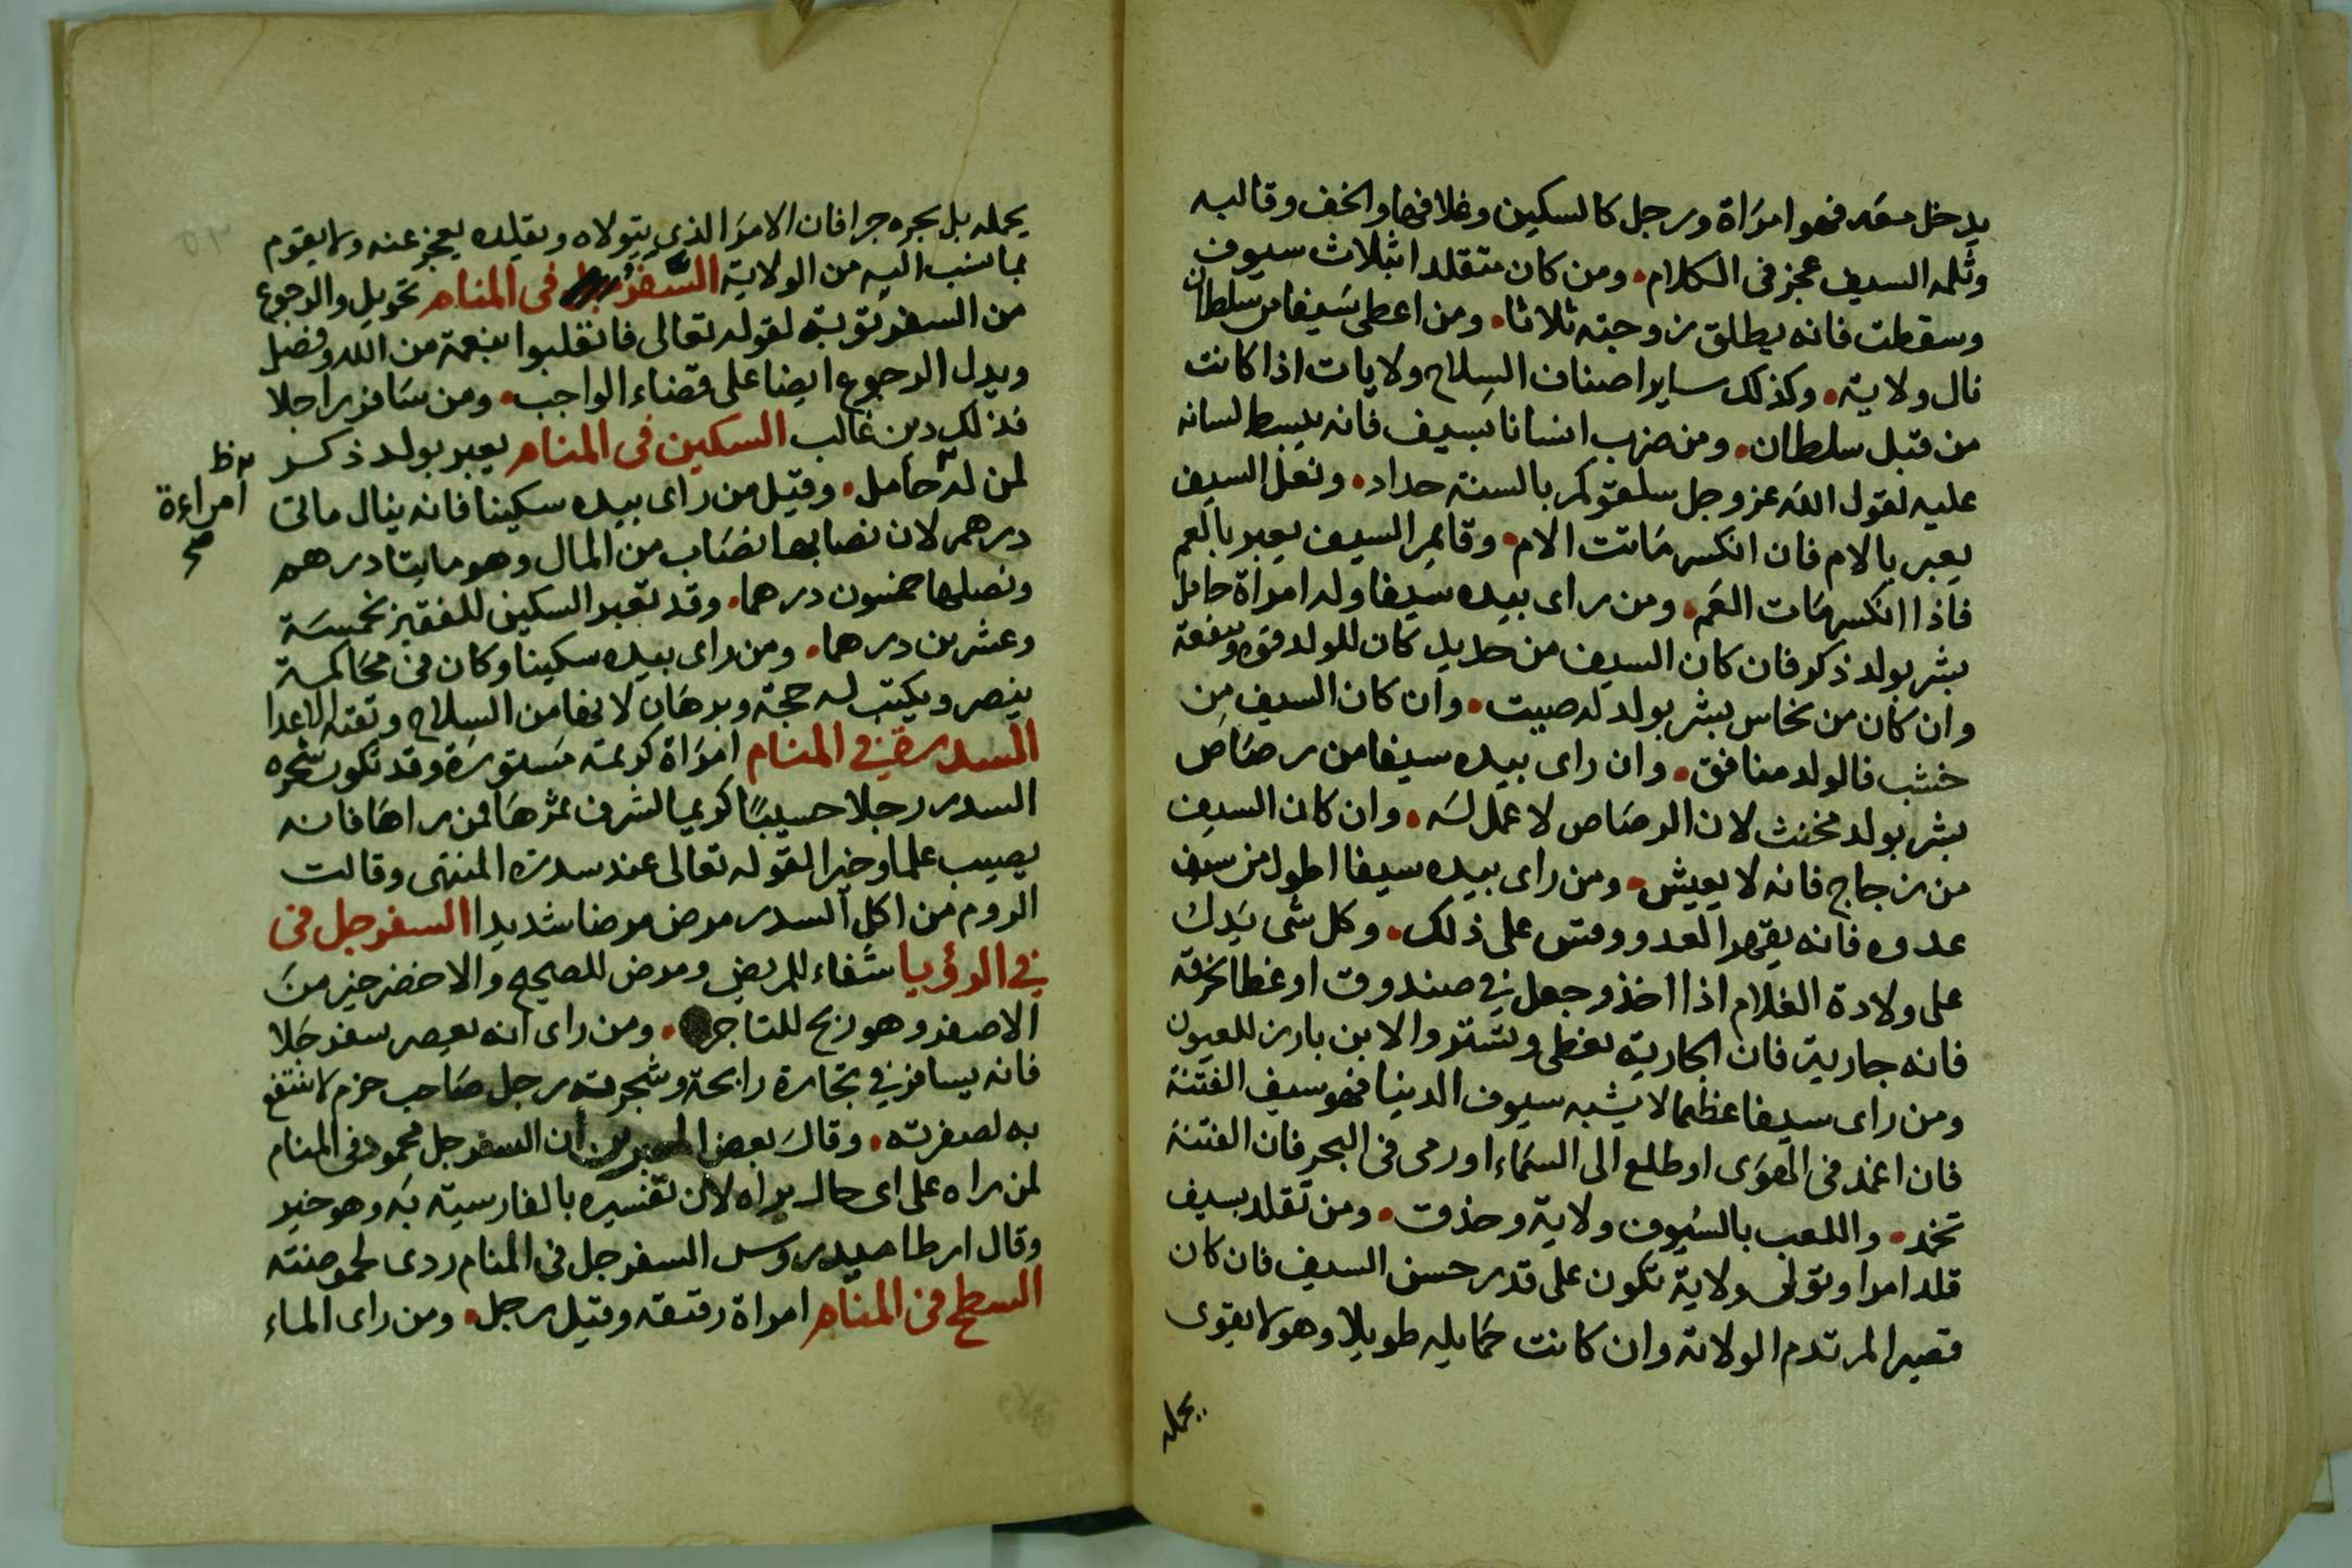 يدخل معه فهو امراة ورجل كالسكين وغلافها والخف وقالبه
وثلمة السيف عجز فى الكلام • ومن كان متقلدا بثلاث سيوف
وسقطت فانه يطلق زوجته ثلاثا • ومن اعطى سيفا من سلطان
نال ولاية • وكذلك ساير اصناف السلاح ولايات اذا كانت
من قبل سلطان • ومن ضرب انسانا بسيف فانه يبسط لسانه
عليه لقول الله عز وجل سلقوكم بالسنة حداد • ونعل السيف
يعبر بالام فان انكسر ماتت الام • وقايم السيف يعبر بالعم
فاذا انكسر مات العم • ومن راى بيده سيفا وله امراة حامل
بشر بولد ذكر فان كان السيف من حديد كان للولد قوة ومنفعة
وان كان من نحاس بشر بولد له صيت • وان كان السيف من
خشب فالولد منافق • وان راى بيده سيفا من رصاص
بشر بولد مخنث لان الرصاص لا عمل له • وان كان السيف
من زجاج فانه لا يعيش • ومن راى بيده سيفا اطول من سيف
عدوه فانه يقهر العدو وقس على ذلك • وكل شى يدل
على ولادة الغلام اذا اخذ وجعل في صندوق او غطا بخرقة
فانه جارية فان الجارية تغطى وتستر والابن بارز للعيون
ومن راى سيفا عظيما لا يشبه سيوف الدنيا فهو سيف الفتنة
فان اغمد فى الهوى او طلع الى السماء او رمى فى البحر فان الفتنة
تخمد • واللعب بالسيوف ولاية وحذق • ومن تقلد بسيف
قلد امرا وتولى ولاية تكون على قدر حسن السيف فان كان
قصيرا لم تدم الولاية وان كانت حمايله طويلا وهو لا يقوى
يحمله
يحمله بل يجره جرا فان الامر الذي يتولاه ويقلده يعجز عنه ولا يقوم
بما نسب اليه من الولاية السفر فى المنام تحويل والرجوع
من السفر توبة لقوله تعالى فانقلبوا بنعمة من الله وفضل
ويدل الرجوع ايضا على قضاء الواجب • ومن سافر راجلا
فذلك دين غالب السكين فى المنام يعبر بولد ذكر
لمن له حامل • وقيل من راى بيده سكينا فانه ينال ماتى
امراءة
صح
درهم لان نصابها نصاب من المال وهو مايتا درهم
ونصلها خمسون درهما • وقد تعبر السكين للفقير بخمسة
وعشرين درهما • ومن راى بيده سكينا وكان فى محاكمة
ينصر ويكتب له حجة وبرهان لانها من السلاح وتقتل الاعدا
السدرة في المنام امراة كريمة مستورة وقد تكون شجرة
السدر رجلا حسيبا كريما لشرف ثمرها فمن راها فانه
يصيب علما وخيرا لقوله تعالى عند سدرة المنتهى وقالت
الروم من اكل السدر مرض مرضا شديدا السفرجل فى
في الرؤيا شفاء للمريض ومرض للصحيح والاخضر خير من
الاصفر وهو ربح للتاجر • ومن راى انه يعصر سفرجلا
فانه يسافر في تجارة رابحة وشجرته رجل صاحب حزم لا ينتفع
به لصفرته • وقال بعض المعبرين ان السفرجل محمود فى المنام
لمن راه على اى حال يراه لان تفسيره بالفارسية به وهو خير
وقال ارطاميدروس السفرجل فى المنام ردى لحموضته
السطح فى المنام امراة رقيقة وقيل رجل • ومن راى الماء